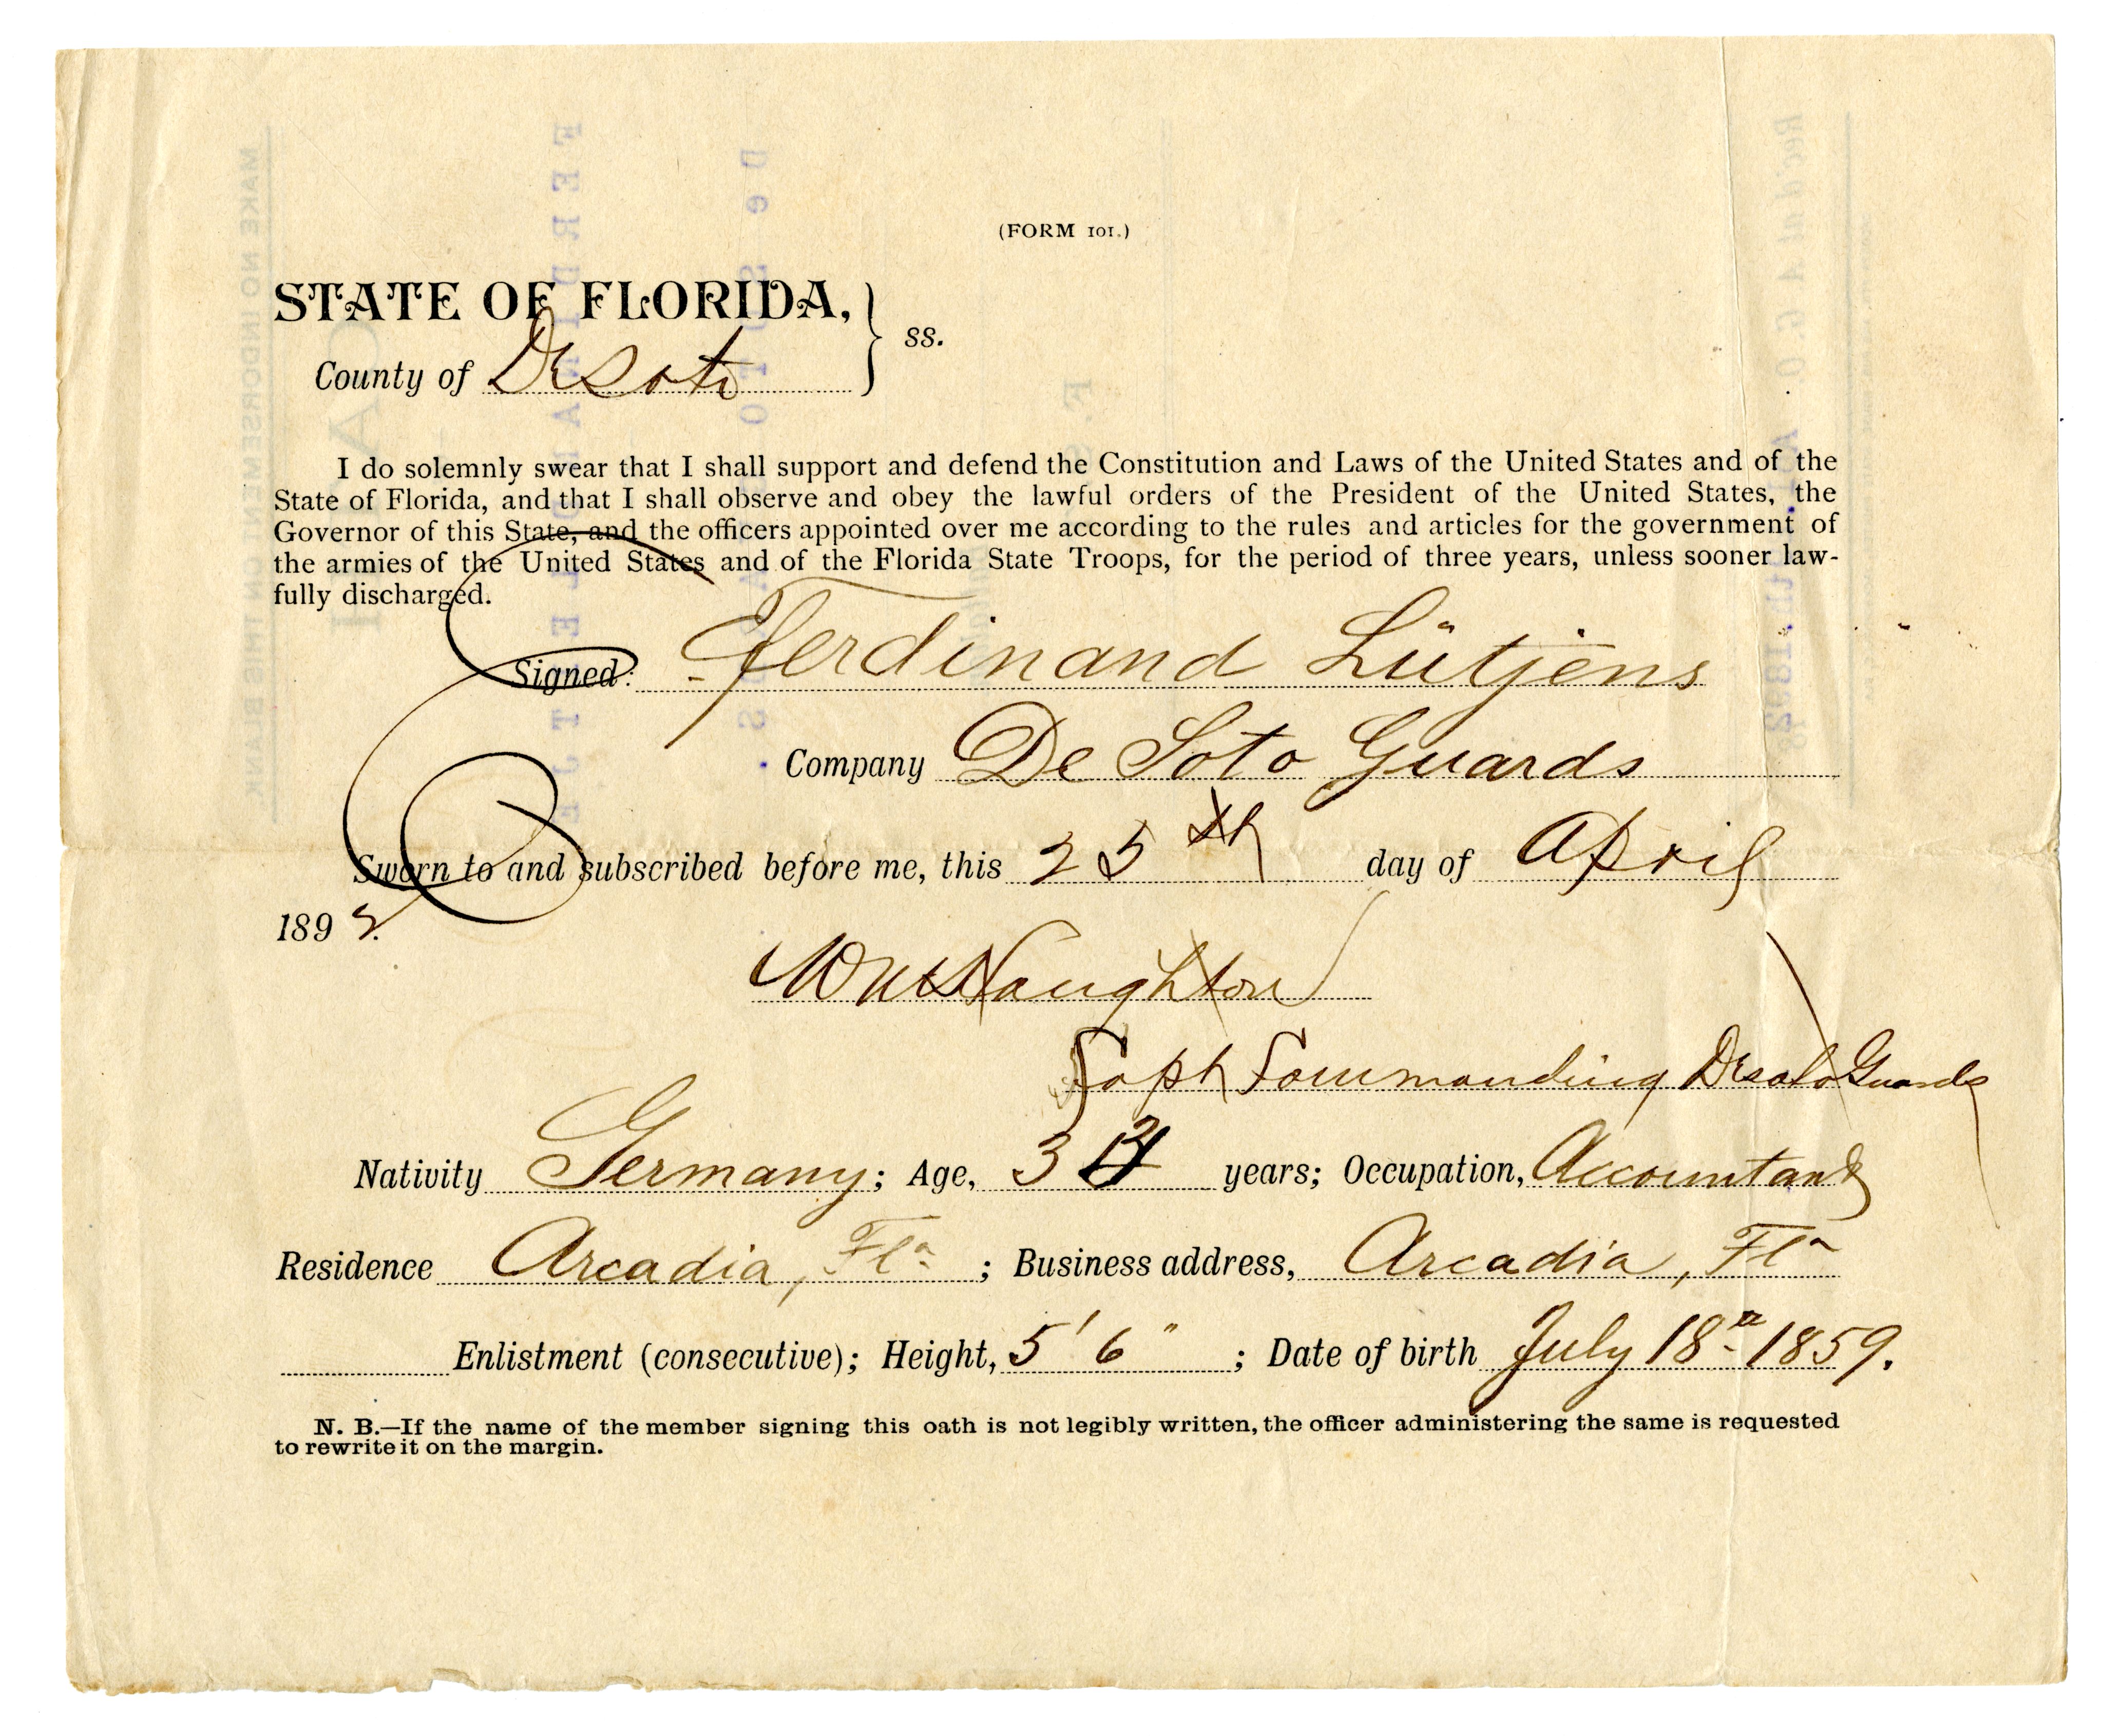 (FORM 101.)
STATE OF FLORIDA,
ss.
County of DeSoto
I do solemnly swear that I shall support and defend the Constitution and Laws of the United States and of the
State of Florida, and that I shall observe and obey the lawful orders of the President of the United States, the
Governor of this State, and the officers appointed over me according to the rules and articles for the government of
the armies of the United States and of the Florida State Troops, for the period of three years, unless sooner law-
fully discharged.
Signed: Ferdinand Lütjens
Company De Soto Guards
Sworn to and subscribed before me, this 25th day of April
1892.
Naughton
Capt Commanding Desoto Guards
Nativity Germany; Age, 3 years; Occupation, Accountant
Residence Arcadia, Fla; Business address, Arcadia, Fla
Enlistment (consecutive); Height, 5' 6"; Date of birth July 18th 1859.
N. B.—If the name of the member signing this oath is not legibly written, the officer administering the same is requested
to rewrite it on the margin.